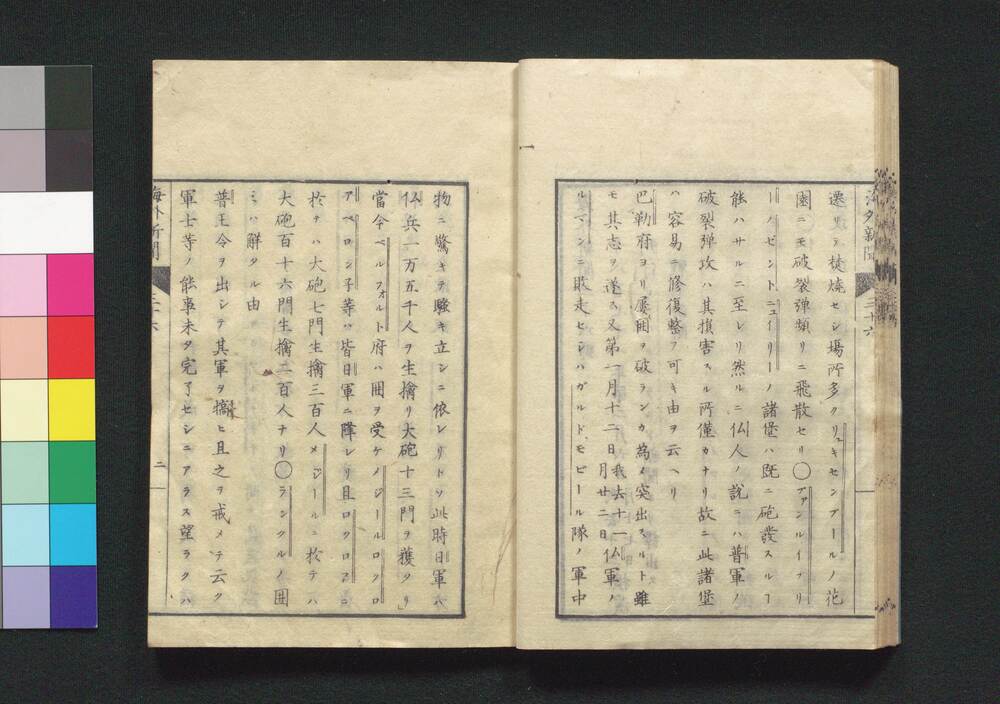 海外新聞 三十六
遷リテ焚燒セシ場所多クリュキセンブールノ花
園ニモ破裂彈頻リニ飛散セリ〇アァンルイフリ
ーノゼントニューイリーノ諸堡ハ既ニ砲發スルヿ
能ハサルニ至レリ然ルニ仏人ノ説ニハ普軍ノ
破裂彈攻ハ其損害スル所僅カナリ故ニ此諸堡
ハ容易ニ修復整フ可キ由ヲ云ヘリ
巴勒府ヨリ屢囲ヲ破ランカ為メ突出スルト雖
モ其志ヲ遂ス又第一月十二日我去十一月廿二日仏軍ノ
ルマンニ敗走セシハガルドモビール隊ノ軍中
物ニ驚キテ騒キ立シニ依レリトソ此時日軍ハ
仏兵一万五千人ヲ生擒リ大砲十三門ヲ獲タリ」
當今ベルフォルト府ハ囲ヲ受ケメジールロクロ
アペロン子等ハ皆日軍ニ降レリ且ロクロアニ
於テハ大砲七門生擒三百人メジールニ於テハ
大砲百十六門生擒二百人ナリ〇ランクルノ囲
ミハ解タル由
普王令ヲ出シテ其軍ヲ犒ヒ且之ヲ戒メテ云ク
軍士等ノ能事未タ完了セシニアラス望ラクハ
海外新聞 三十六 二